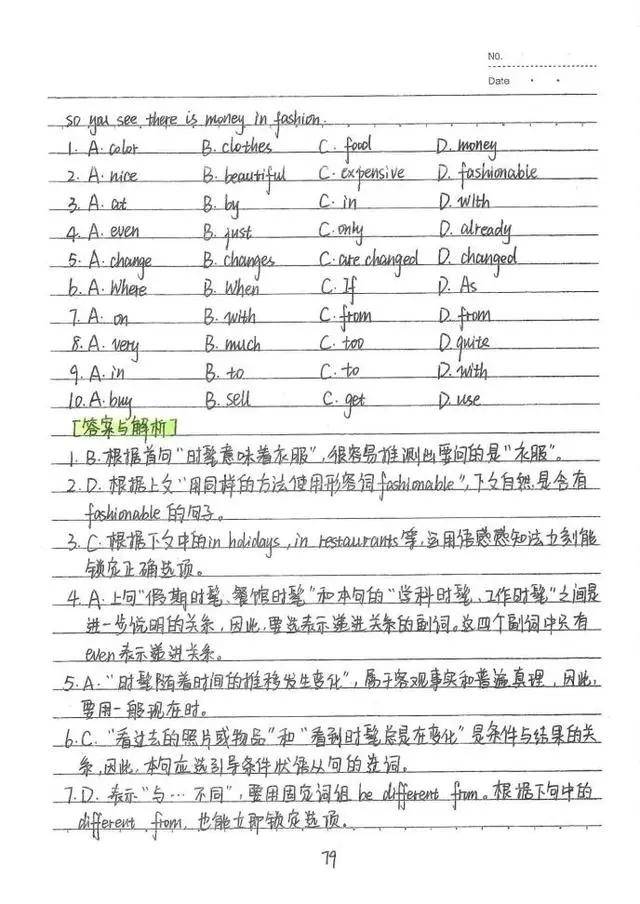 No.
Date
so you see there is money in fashion.
1. A. color B. clothes C. food D. money
2. A. nice B. beautiful C. expensive D. fashionable
3. A. at B. by C. in D. with
4. A. even B. just C. only D. already
5. A. change B. changes C. are changed D. changed
6. A. Where B. When C. If D. As
7. A. on B. with C. from D. from
8. A. very B. much C. too D. quite
9. A. in B. to C. to D. with
10. A. buy B. sell C. get D. use
[答案与解析]
1. B. 根据首句“时髦意味着衣服”, 很容易推测出要问的是“衣服”。
2. D. 根据上文“用同样的方法使用形容词fashionable”, 下文自然是含有
fashionable 的句子。
3. C. 根据下文中的in holidays, in restaurants等, 运用语感感知法立刻能
锁定正确选项。
4. A. 上句“假期时髦、餐馆时髦”和本句的“学科时髦、工作时髦”之间是
进一步说明的关系, 因此, 要选表示递进关系的副词。这四个副词中只有
even 表示递进关系。
5. A. “时髦随着时间的推移发生变化”, 属于客观事实和普遍真理, 因此,
要用一般现在时。
6. C. “看过去的照片或物品”和“看到时髦总是在变化”是条件与结果的关
系, 因此, 本句应选引导条件状语从句的连词。
7. D. 表示“与…不同”, 要用固定词组 be different from。根据下句中的
different from, 也能立即锁定选项。
79